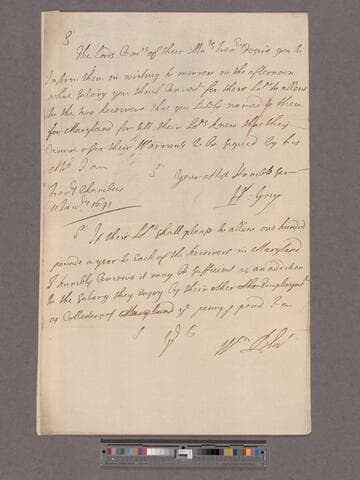 S
The Lords Com:rs of their Ma:ts Trea:ry desire you to
Inform them in writing to morrow in the afternoon
what Salary you think Convent for their Lo:ps to allow
to the two Receivers that you lately named to them
for Maryland for till their Lo:ps know that they
cannot offer their Warrants to be signed by his
Ma:ty I am
S:r
Your Most Humble Serv
Trea:ry Chambers
11 Jan:ry 1691
H: Guy
S:r If their Lo:ps shall please to allow one hundred
pounds a year to Each of the Receivers in Maryland
I humbly Conceive it may be sufficient as an addition
to the Salary they enjoy by their other Employment
as Collectors of Maryland y:e penny p pound I am
S
W:m Bla:t